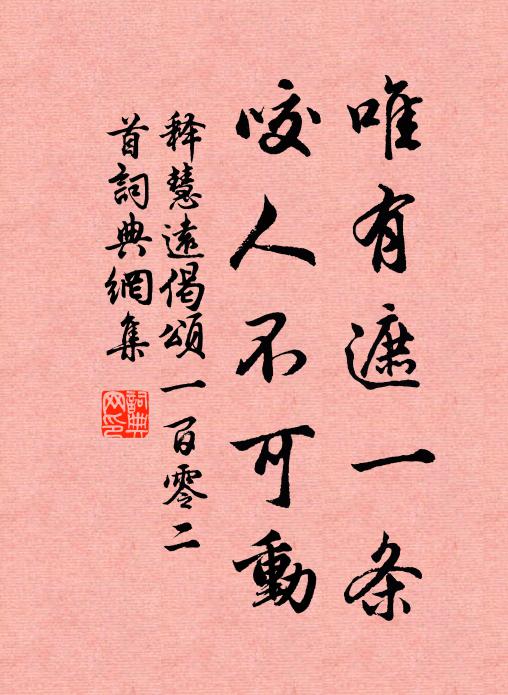 唯有遮一条
咬人不可動
释慧遠偈頌一百零二
首詞典網集
詞典
网印